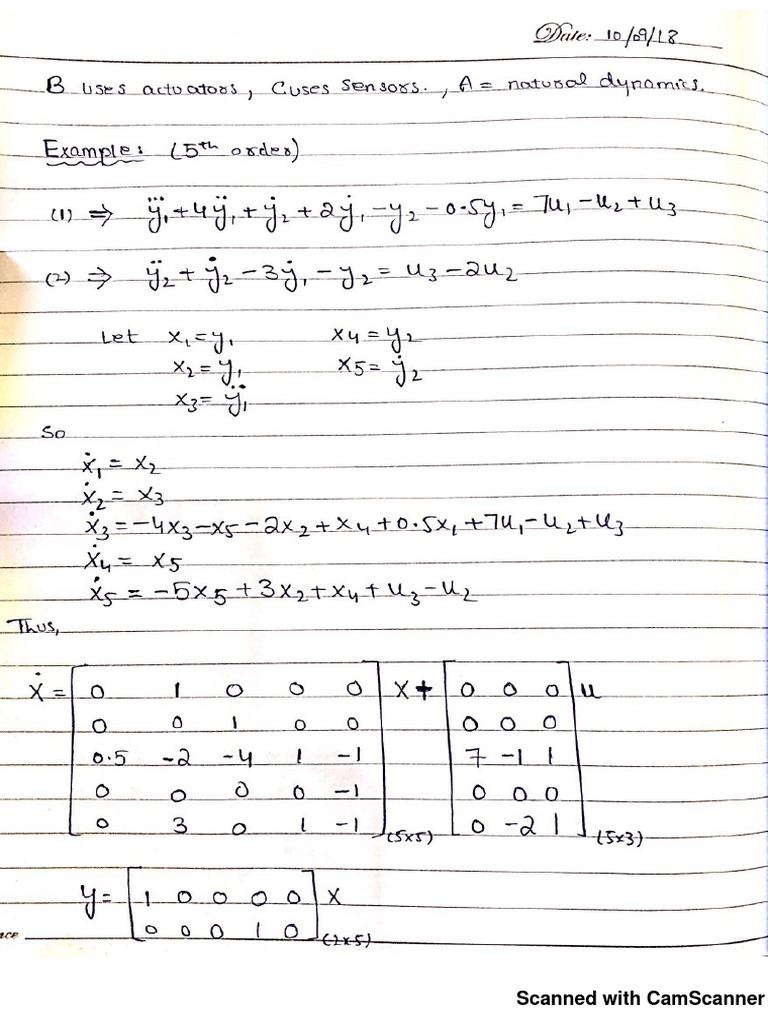 Date: 10/09/18
B uses actuators, C uses sensors., A = natural dynamics.
Example: (5th order)
(1) ⇒ y⃛₁+4ÿ₁+ẏ₂+2ẏ₁-y₂-0.5y₁=7u₁-u₂+u₃
(2) ⇒ ÿ₂+ẏ₂-3ẏ₁-y₂=u₃-2u₂
Let x₁=y₁ x₄=y₂
x₂=ẏ₁ x5=ẏ₂
x₃=ÿ₁
So
ẋ₁ = x₂
ẋ₂ = x₃
ẋ₃=-4x₃-x5-2x₂+x₄+0.5x₁+7u₁-u₂+u₃
ẋ₄= x5
ẋ₅ = -5x5+3x₂+x₄+u₃-u₂
Thus,
ẋ = [0 1 0 0 0] x + [0 0 0] u
0 0 1 0 0 0 0 0
0.5 -2 -4 1 -1 7 -1 1
0 0 0 0 -1 0 0 0
0 3 0 1 -1 (5x5) 0 -2 1 (5x3)
y= [1 0 0 0 0] x
0 0 0 1 0 (2x5)
Scanned with CamScanner